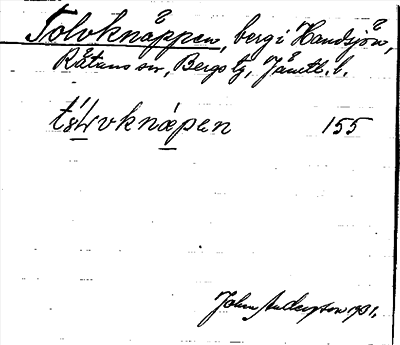 Tolvknäppen, berg i Handsjön,
Rätans sn, Bergs tg, Jämtl. l.
knäpen 155
John Anderson 1931.